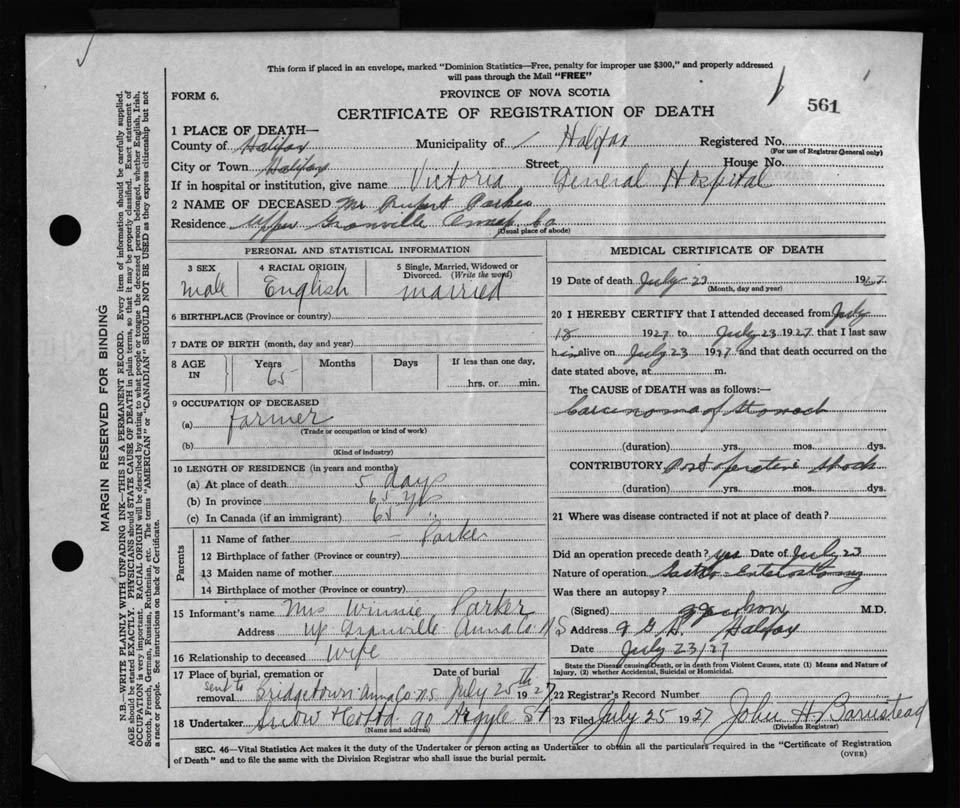 This form if placed in an envelope, marked "Dominion Statistics—Free, penalty for improper use $300," and properly addressed
will pass through the Mail "FREE"
FORM 6.
PROVINCE OF NOVA SCOTIA
561
CERTIFICATE OF REGISTRATION OF DEATH
1 PLACE OF DEATH—
County of Halifax Municipality of Halifax Registered No.
(For use of Registrar General only)
City or Town Halifax Street House No.
If in hospital or institution, give name Victoria General Hospital
2 NAME OF DECEASED Mr Rupert Parker
Residence Upper Granville Annap Co
(Usual place of abode)
PERSONAL AND STATISTICAL INFORMATION
3 SEX 4 RACIAL ORIGIN 5 Single, Married, Widowed or
Divorced. (Write the word)
male English married
6 BIRTHPLACE (Province or country)
7 DATE OF BIRTH (month, day and year)
8 AGE IN Years Months Days If less than one day,
65 hrs. or min.
9 OCCUPATION OF DECEASED
(a) farmer
(Trade or occupation or kind of work)
(b)
(Kind of industry)
10 LENGTH OF RESIDENCE (in years and months)
(a) At place of death 5 days
(b) In province 65 yrs
(c) In Canada (if an immigrant) 65 "
Parents
11 Name of father — Parker
12 Birthplace of father (Province or country)
13 Maiden name of mother
14 Birthplace of mother (Province or country)
15 Informant's name Mrs Winnie Parker
Address Up. Granville Anna Co. N S
16 Relationship to deceased wife
17 Place of burial, cremation or Date of burial
removal sent to Bridgetown Anna Co. N.S. July 25th 1927
18 Undertaker Snow 90 Argyle St
(Name and address)
MEDICAL CERTIFICATE OF DEATH
19 Date of death July 23 1927
(Month, day and year)
20 I HEREBY CERTIFY that I attended deceased from July
18 1927 to July 23 1927 that I last saw
him alive on July 23 1927 and that death occurred on the
date stated above, at m.
The CAUSE of DEATH was as follows:—
Carcinoma of Stomach
(duration) yrs. mos. dys.
CONTRIBUTORY Post operative shock
(duration) yrs. mos. dys.
21 Where was disease contracted if not at place of death?
Did an operation precede death? yes Date of July 23
Nature of operation Gastro-Enterostomy
Was there an autopsy?
(Signed) M.D.
Address Halifax
Date July 23/27
State the Disease causing Death, or in death from Violent Causes, state (1) Means and Nature of
Injury, (2) whether Accidental, Suicidal or Homicidal.
22 Registrar's Record Number
23 Filed July 25 1927 John H. Barnstead
(Division Registrar)
SEC. 46—Vital Statistics Act makes it the duty of the Undertaker or person acting as Undertaker to obtain all the particulars required in the "Certificate of Registration
of Death" and to file the same with the Division Registrar who shall issue the burial permit.
(OVER)
MARGIN RESERVED FOR BINDING
N.B.—WRITE PLAINLY WITH UNFADING INK—THIS IS A PERMANENT RECORD. Every item of information should be carefully supplied.
AGE should be stated EXACTLY. PHYSICIANS should STATE CAUSE OF DEATH in plain terms, so that it may be properly classified. Exact statement of
OCCUPATION is very important. RACIAL ORIGIN will be described by stating to what people or tongue the deceased person belonged, whether English, Irish,
Scotch, French, German, Russian, Ruthenian, etc. The terms "AMERICAN" or "CANADIAN" SHOULD NOT BE USED as they express citizenship but not
a race or people. See instructions on back of Certificate.